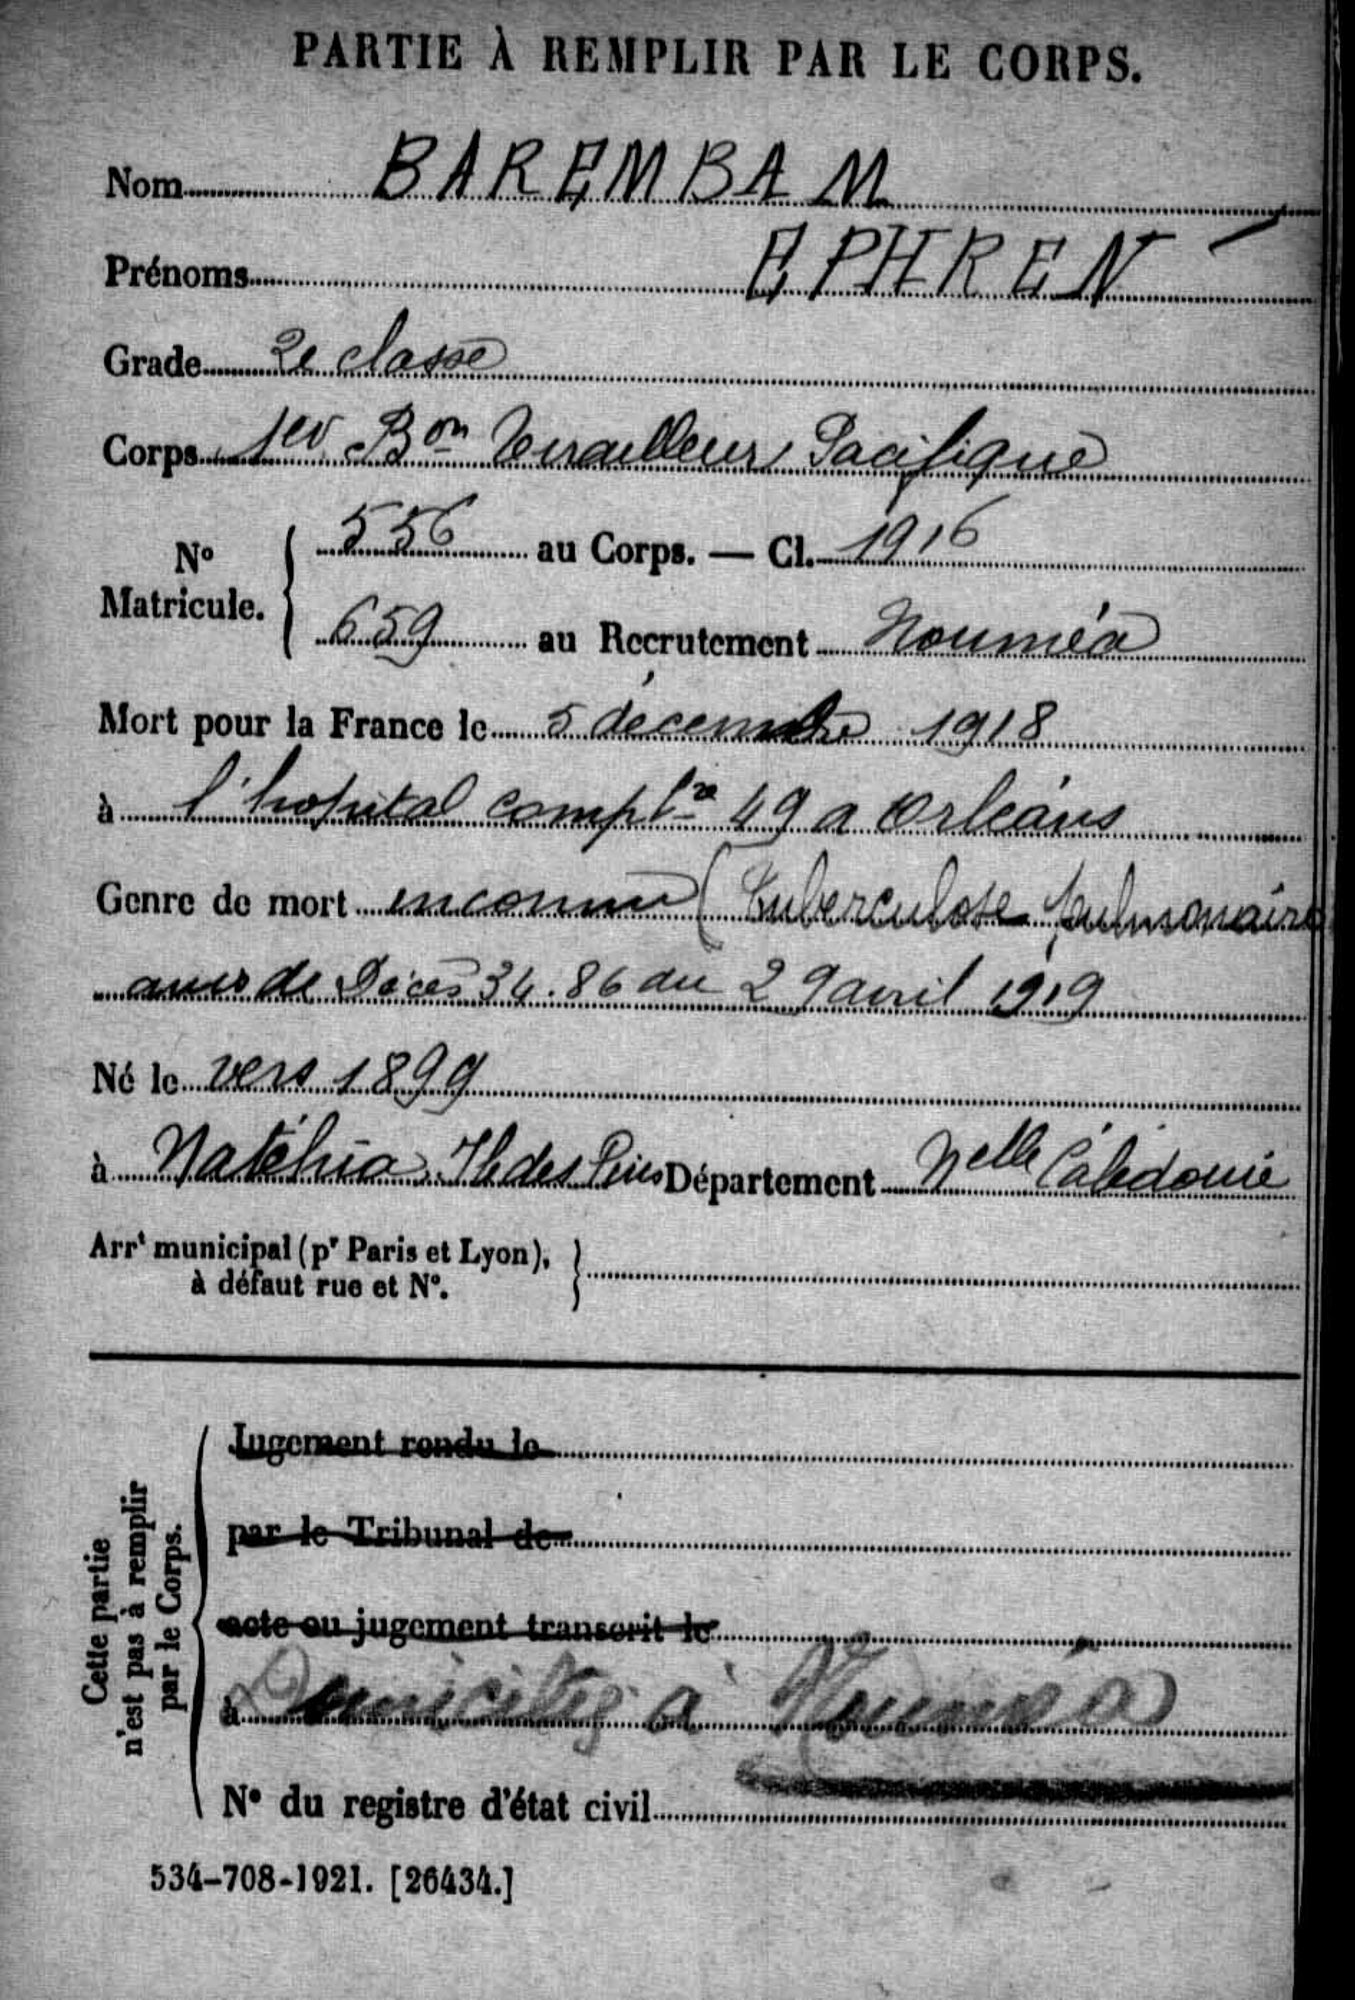 PARTIE À REMPLIR PAR LE CORPS.
Nom BAREMBAM
Prénoms EPHREN
Grade 2e classe
Corps 1er Bon Tirailleurs Pacifique
No Matricule. 556 au Corps. — Cl. 1916
659 au Recrutement Nouméa
Mort pour la France le 5 décembre 1918
à l'hopital complre 49 a Orléans
Genre de mort inconnu (Tuberculose pulmonaire
avis de Décès 34.86 du 29 avril 1919
Né le vers 1899
à Ile des Pins Département Nelle Calédonie
Arrt municipal (pr Paris et Lyon),
à défaut rue et No.
Cette partie
n'est pas à remplir
par le Corps.
Jugement rendu le
par le Tribunal de
acte ou jugement transcrit le
à Domicilié à Nouméa
No du registre d'état civil
534-708-1921. [26434.]